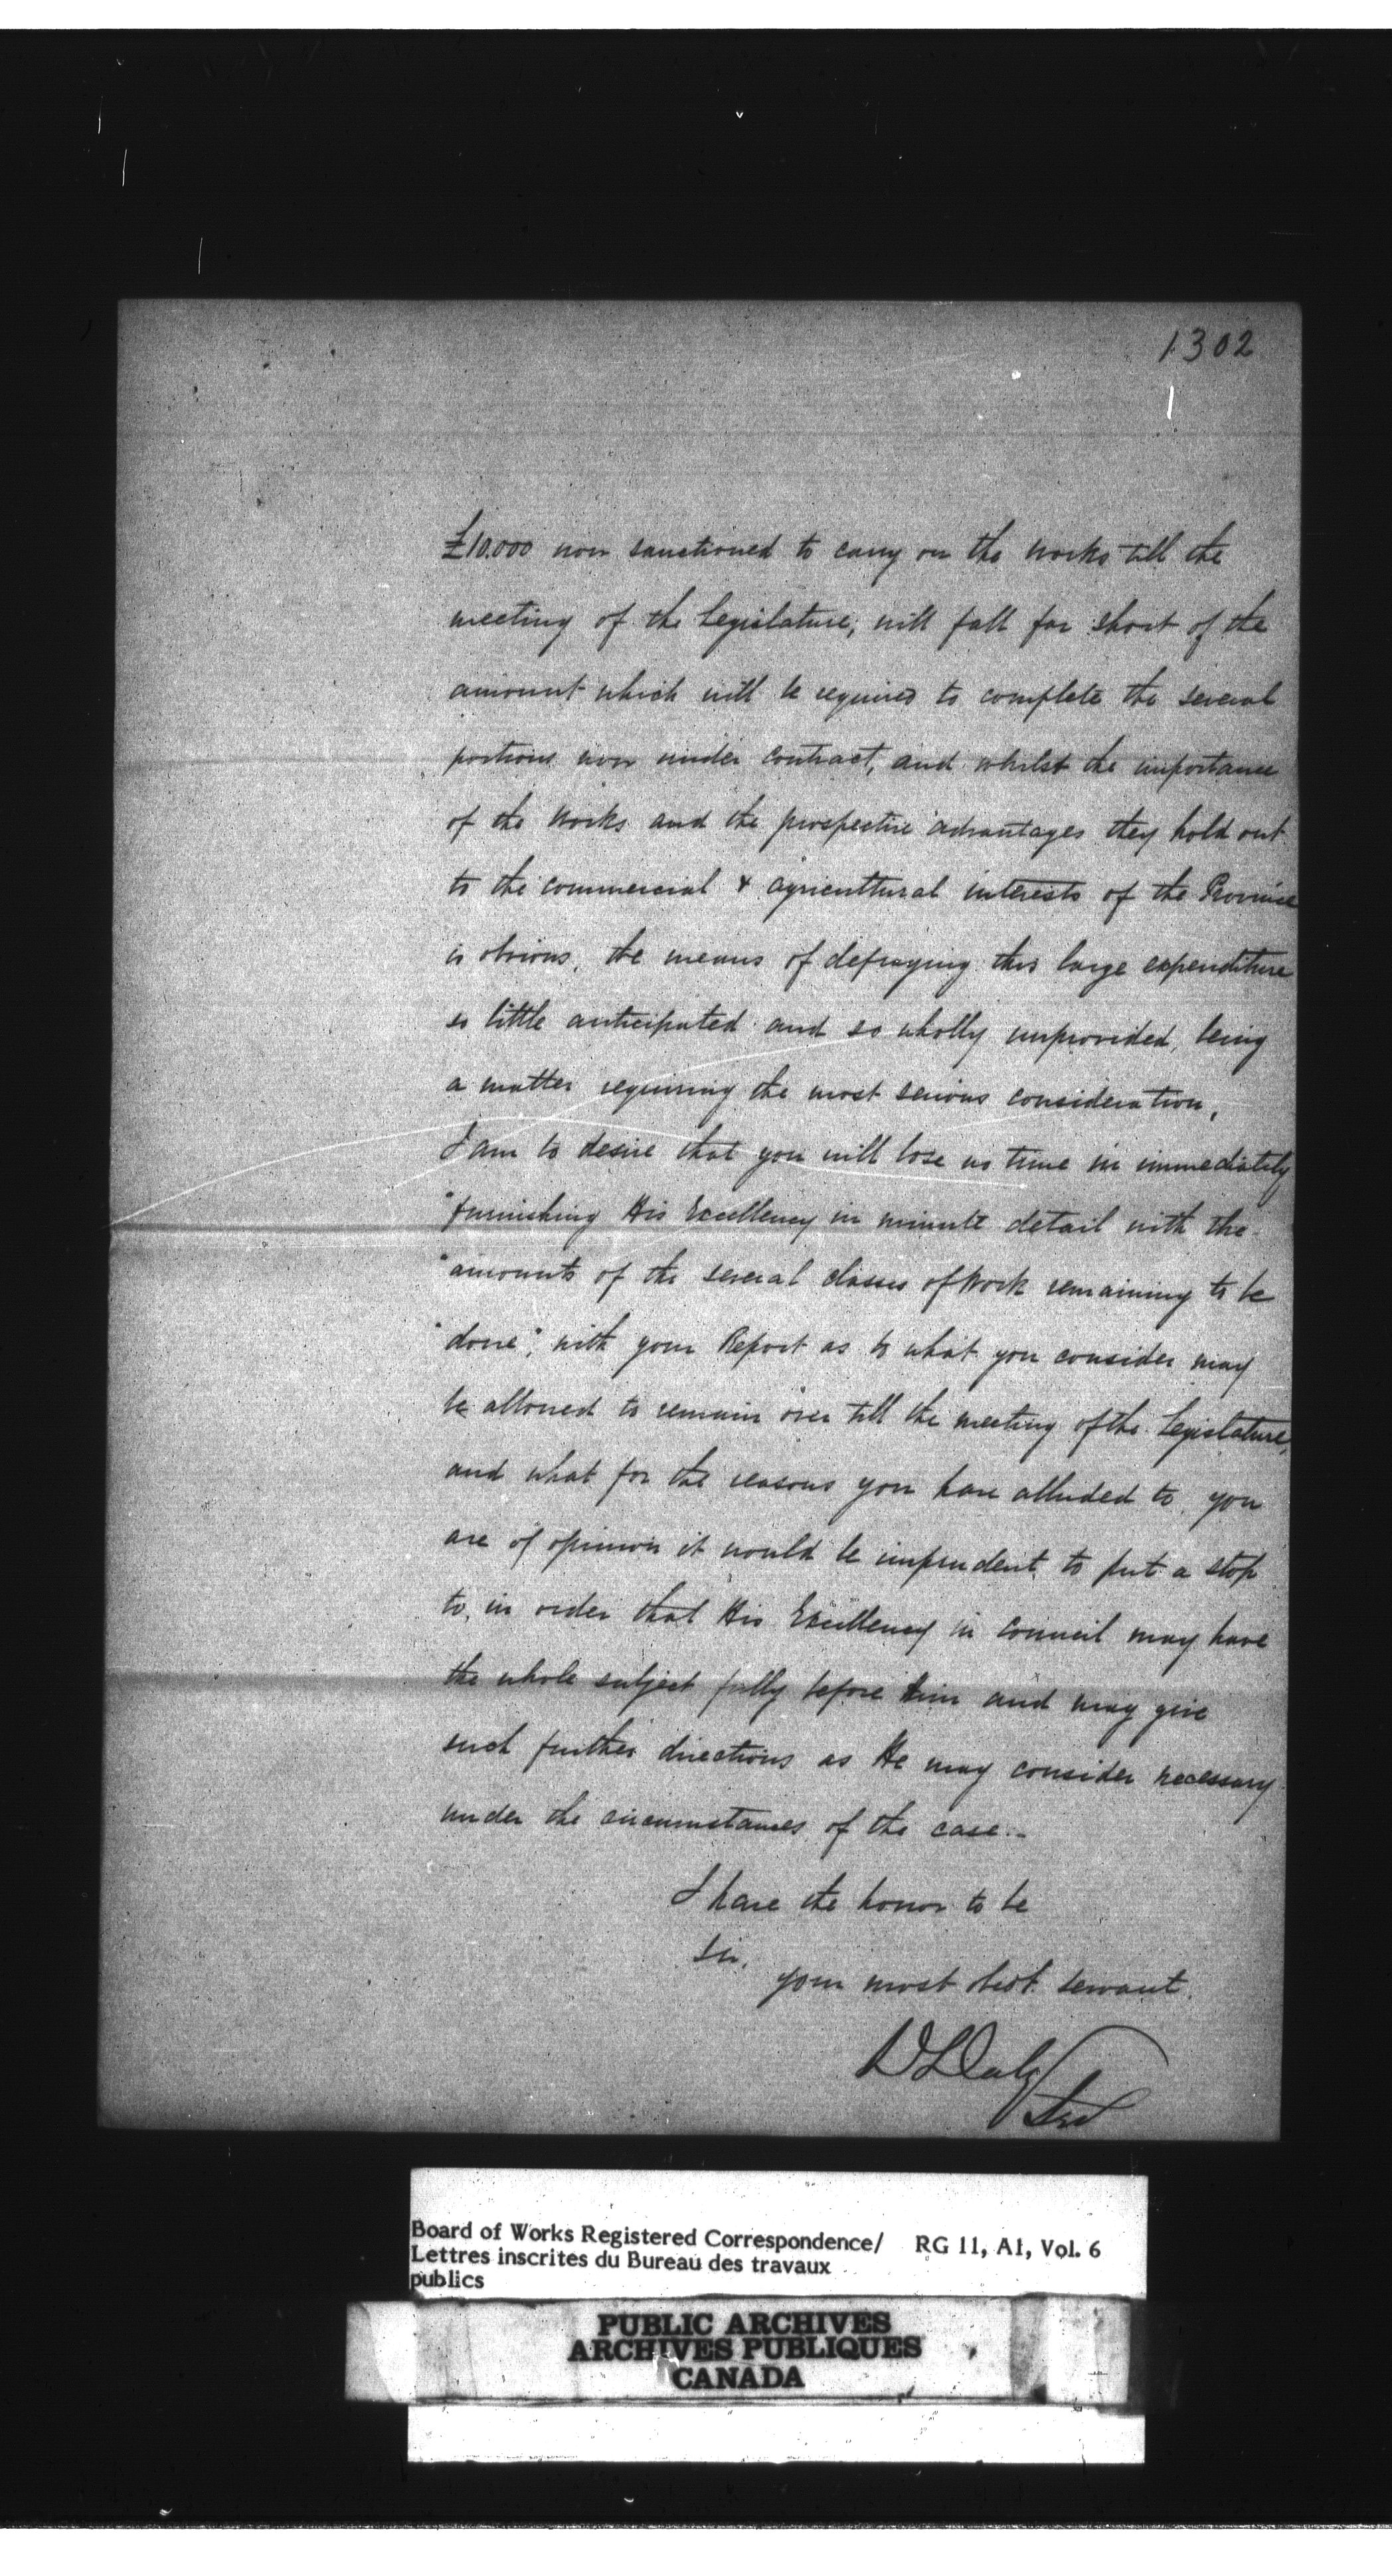 1302
£10.000 now sanctioned to carry on the works till the
meeting of the Legislature, will fall far short of the
amount which will be required to complete the several
portions now under contract, and whilst the importance
of the works and the prospective advantages they hold out
to the commercial & agricultural interests of the Province
is obvious, the means of defraying this large expenditure
so little anticipated and so wholly unprovided, being
a matter requiring the most serious consideration,
I am to desire that you will lose no time in immediately
"furnishing His Excellency in minute detail with the
"amounts of the several classes of Work remaining to be
"done", with your Report as to what you consider may
be allowed to remain over till the meeting of the Legislature,
and what for the reasons you have alluded to, you
are of opinion it would be imprudent to put a stop
to, in order that His Excellency in Council may have
the whole subject fully before him and may give
such further directions as He may consider necessary
under the circumstances of the case.-
I have the honor to be
Sir,
your most obdt. servant.
D Daly
Sec
Board of Works Registered Correspondence/ RG 11, A1, Vol. 6
Lettres inscrites du Bureau des travaux
publics
PUBLIC ARCHIVES
ARCHIVES PUBLIQUES
CANADA